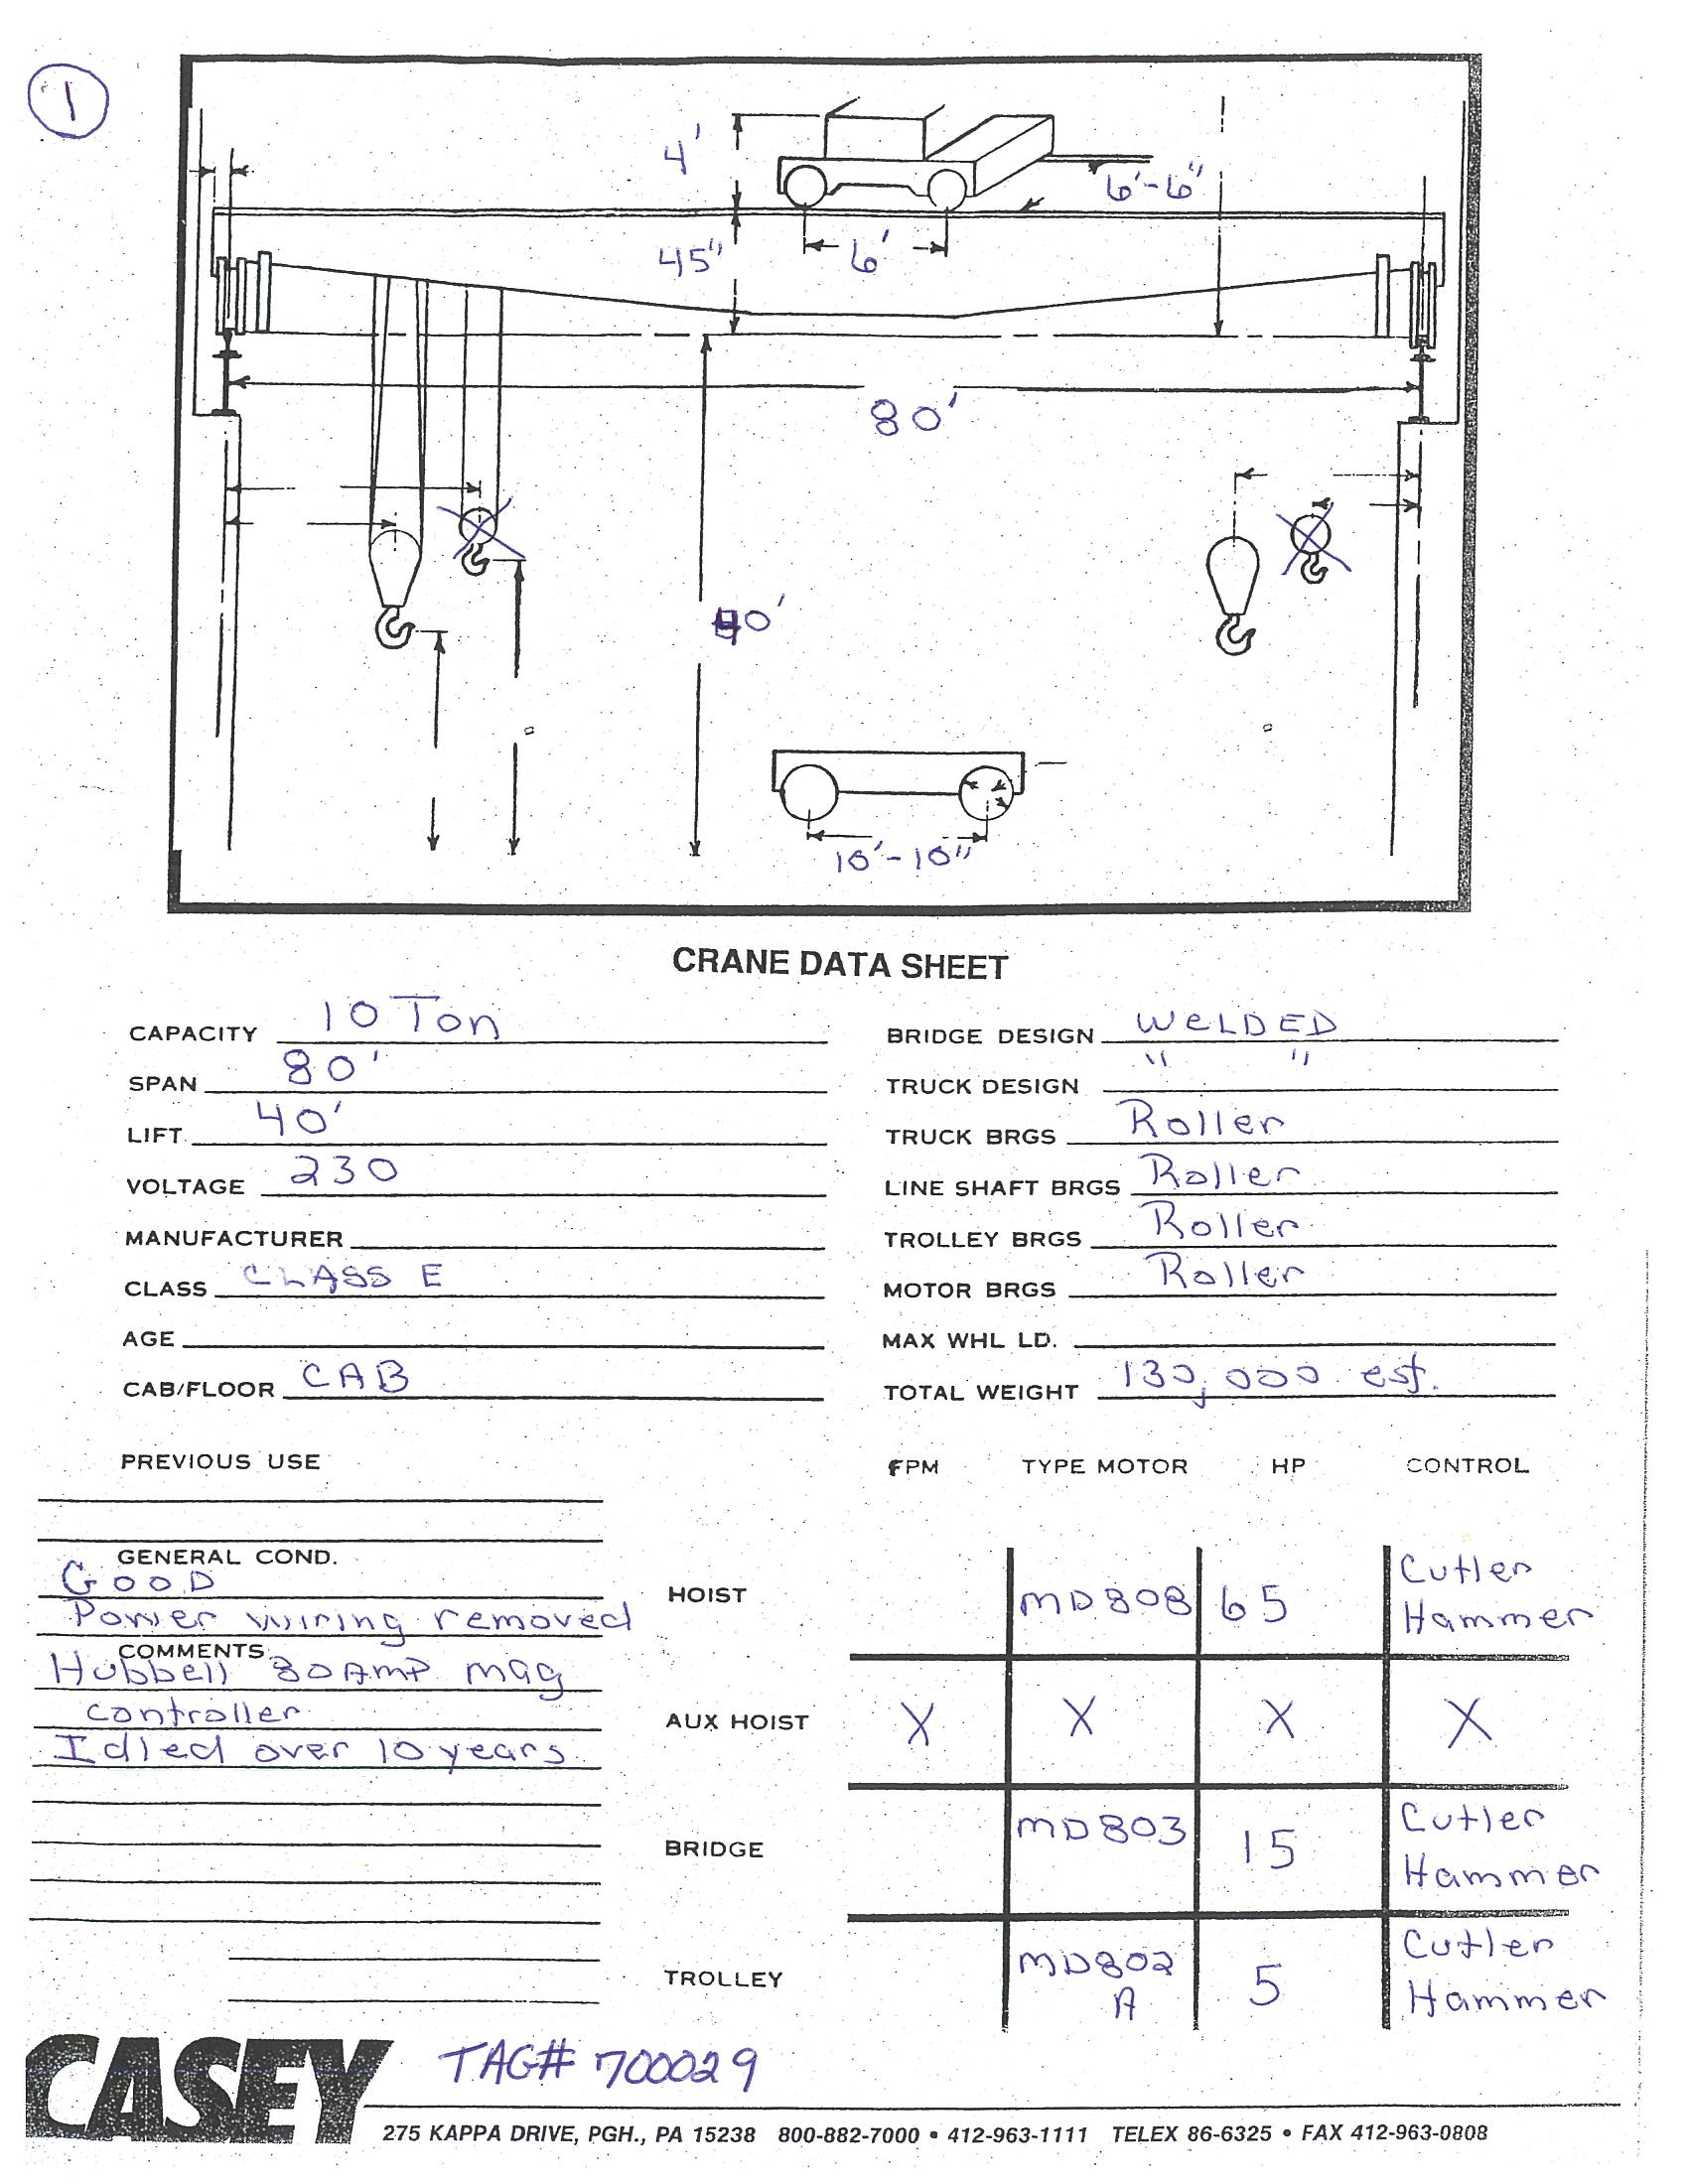 1
4'
6'-6"
45"
6'
80'
40'
10'-10"
CRANE DATA SHEET
CAPACITY 10 Ton
SPAN 80'
LIFT 40'
VOLTAGE 230
MANUFACTURER
CLASS CLASS E
AGE
CAB/FLOOR CAB
BRIDGE DESIGN WeLDED
TRUCK DESIGN " "
TRUCK BRGS Roller
LINE SHAFT BRGS Roller
TROLLEY BRGS Roller
MOTOR BRGS Roller
MAX WHL LD.
TOTAL WEIGHT 130,000 est.
PREVIOUS USE
GENERAL COND.
GOOD
Power wiring removed
COMMENTS
Hubbell 80 Amp mag
controller
Idled over 10 years
FPM TYPE MOTOR HP CONTROL
HOIST MD808 65 Cutler
Hammer
AUX HOIST X X X X
BRIDGE MD803 15 Cutler
Hammer
TROLLEY MD802 5 Cutler
A Hammer
CASEY TAG# 700029
275 KAPPA DRIVE, PGH., PA 15238 800-882-7000 • 412-963-1111 TELEX 86-6325 • FAX 412-963-0808